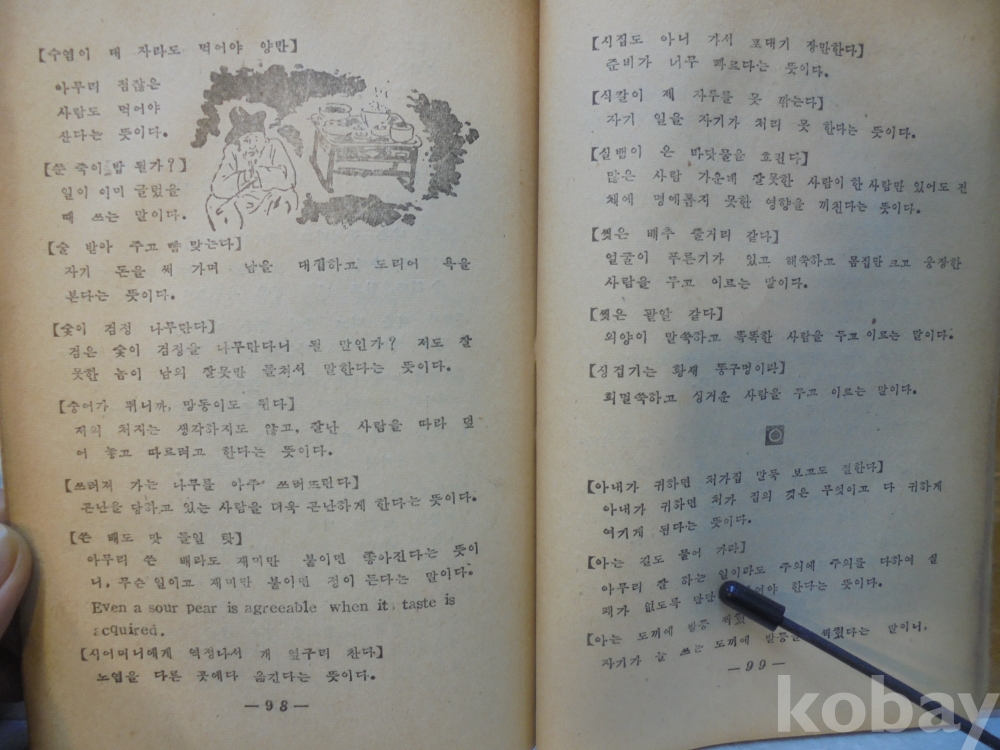 【수염이 대 자라도 먹어야 양반】
아무리 점잖은
사람도 먹어야
산다는 뜻이다.
【쑨 죽이 밥 될가?】
일이 이미 글렀을
때 쓰는 말이다.
【술 받아 주고 뺨 맞는다】
자기 돈을 써 가며 남을 대접하고 도리어 욕을
본다는 뜻이다.
【숯이 검정 나무란다】
검은 숯이 검정을 나무란다니 될 말인가? 저도 잘
못한 놈이 남의 잘못만 들춰서 말한다는 뜻이다.
【숭어가 뛰니까, 망둥이도 뛴다】
저의 처지는 생각하지도 않고, 잘난 사람을 따라 덮
어 놓고 따르려고 한다는 뜻이다.
【쓰러져 가는 나무를 아주 쓰러뜨린다】
곤난을 당하고 있는 사람을 더욱 곤난하게 한다는 뜻이다.
【쓴 배도 맛 들일 탓】
아무리 쓴 배라도 재미만 붙이면 좋아진다는 뜻이
니, 무슨 일이고 재미만 붙이면 정이 든다는 말이다.
Even a sour pear is agreeable when it taste is
acquired.
【시어머니에게 역정나서 개 옆구리 찬다】
노염을 다른 곳에다 옮긴다는 뜻이다.
—98—
【시집도 아니 가서 포대기 장만한다】
준비가 너무 빠르다는 뜻이다.
【식칼이 제 자루를 못 깎는다】
자기 일을 자기가 처리 못 한다는 뜻이다.
【실뱀이 온 바닷물을 흐린다】
많은 사람 가운데 잘못한 사람이 한 사람만 있어도 전
체에 명예롭지 못한 영향을 끼친다는 뜻이다.
【씻은 배추 줄거리 같다】
얼굴이 푸른기가 있고 해쓱하고 몸집만 크고 웅장한
사람을 두고 이르는 말이다.
【씻은 팥알 같다】
외양이 말쑥하고 똑똑한 사람을 두고 이르는 말이다.
【싱겁기는 황새 똥구멍이다】
희멀쑥하고 싱거운 사람을 두고 이르는 말이다.
【아내가 귀하면 처가집 말뚝 보고도 절한다】
아내가 귀하면 처가 집의 것은 무엇이고 다 귀하게
여기게 된다는 뜻이다.
【아는 길도 물어 가라】
아무리 잘 하는 일이라도 주의에 주의를 다하여 실
패가 없도록 한다는 뜻이다.
【아는 도끼에 발등
자기가 늘 쓰는 도끼에 찍혔다는 말이니,
—99—
kobay